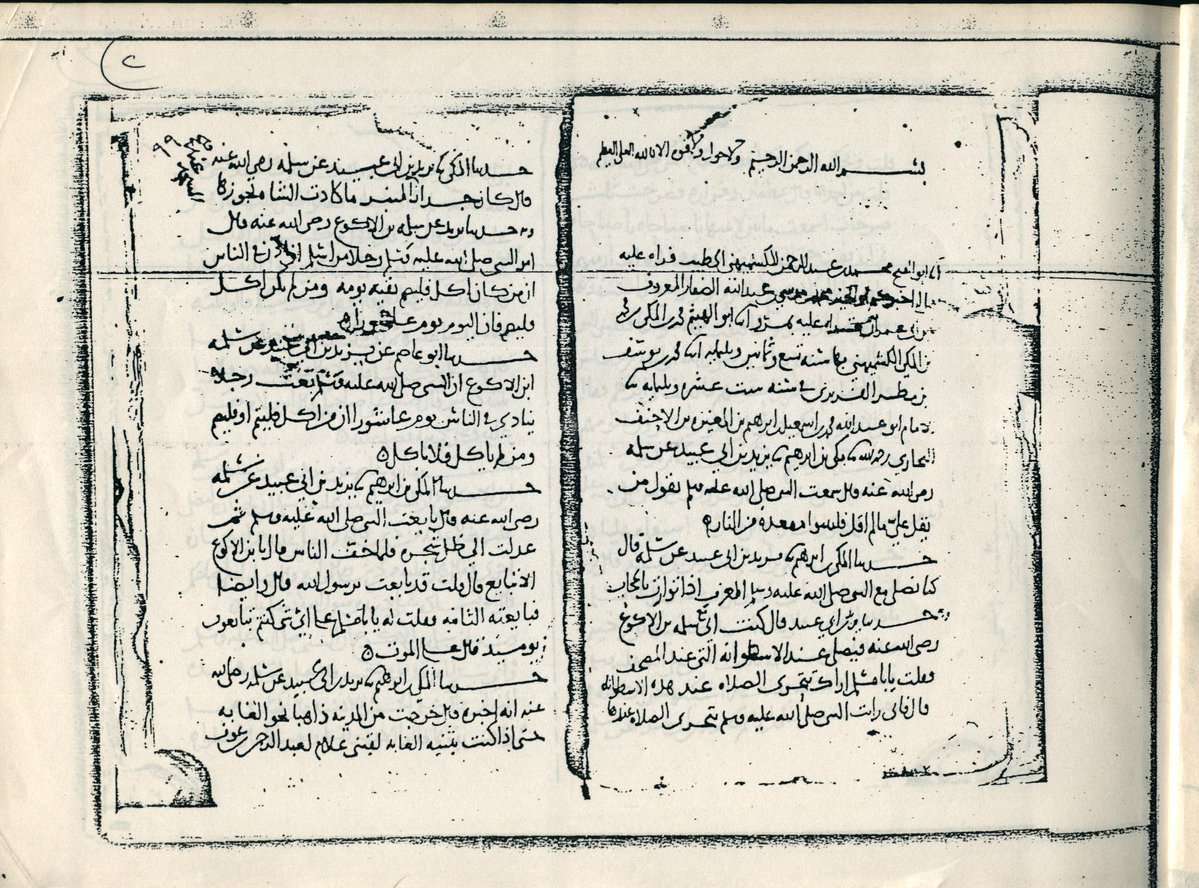 بسم الله الرحمن الرحيم ولا حول ولا قوة الا بالله العلي العظيم
ابو الفتح محمد بن عبد الرحمن الكشميهني الخطيب قراه عليه
قال عبد الله الصفار المعروف
بن ابي عمران عليه بمرو ابو الهيثم محمد بن المكي بن محمد
بن المكي الكشميهني بها سنة تسع وثمانين وثلثمايه محمد بن يوسف
بن مطر الفربري في سنه ست عشره وثلثمايه
الامام ابو عبد الله محمد بن اسمعيل بن ابرهيم بن المغيره بن الاحنف
البخاري رحمه الله مكي بن ابرهيم يزيد بن ابي عبيد عن سلمه
رضي الله عنه قال سمعت النبي صلى الله عليه وسلم يقول من
يقل علي ما لم اقل فليتبوا مقعده من النار
حدثنا المكي بن ابرهيم يزيد بن ابي عبيد عن سلمة قال
كنا نصلي مع النبي صلى الله عليه وسلم المغرب اذا توارت بالحجاب
حدثنا يزيد بن ابي عبيد قال كنت اتي مع سلمه بن الاكوع
رضي الله عنه فيصلي عند الاسطوانه التي عند المصحف
فقلت يابا مسلم اراك تتحرى الصلاه عند هذه الاسطوانه
قال فاني رايت النبي صلى الله عليه وسلم يتحرى الصلاه عندها
٢
٩٩
حدثنا المكي يزيد بن ابي عبيد عن سلمه رضي الله عنه
قال كان جدار المنبر ما كادت الشاه تجوزه
حدثنا يزيد عن سلمه بن الاكوع رضي الله عنه قال
امر النبي صلى الله عليه وسلم رجلا من اسلم ان اذن في الناس
ان من كان اكل فليصم بقيه يومه ومن لم يكن اكل
فليصم فان اليوم يوم عاشورا
حدثنا ابو عاصم عن يزيد بن ابي عبيد عن سلمه
ابن الاكوع ان النبي صلى الله عليه وسلم بعث رجلا
ينادي في الناس يوم عاشورا ان من اكل فليتم او فليصم
ومن لم ياكل فلا ياكل
حدثنا المكي بن ابرهيم يزيد بن ابي عبيد عن سلمه
رضي الله عنه قال بايعت النبي صلى الله عليه وسلم ثم
عدلت الى ظل شجره فلما خف الناس قال يا بن الاكوع
الا تبايع قال قلت قد بايعت يرسول الله قال وايضا
فبايعته الثانيه فقلت له يابا مسلم على اي شي كنتم تبايعون
يوميذ قال على الموت
حدثنا المكي بن ابرهيم يزيد بن ابي عبيد عن سلمه رضي الله
عنه انه اخبره قال خرجت من المدينه ذاهبا نحو الغابه
حتى اذا كنت بثنيه الغابه لقيني غلام لعبد الرحمن بن عوف